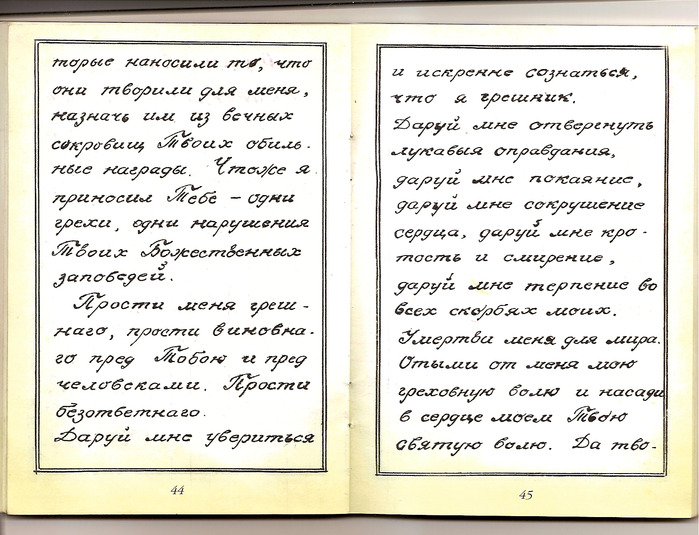 торые наносили то, что
они творили для меня,
назначь им из вечных
сокровищ Твоих обиль-
ные награды. Что же я
приносил Тебе – одни
грехи, одни нарушения
Твоих Божественных
заповедей.
Прости меня греш-
наго, прости виновна-
го пред Тобою и пред
человеками. Прости
безответнаго.
Даруй мне увериться
44
и искренне сознаться,
что я грешник.
Даруй мне отвергнуть
лукавыя оправдания,
даруй мне покаяние,
даруй мне сокрушение
сердца, даруй мне кро-
тость и смирение,
даруй мне терпение во
всех скорбях моих.
Умертви меня для мира.
Отыми от меня мою
греховную волю и насади
в сердце моем Твою
святую волю. Да тво-
45